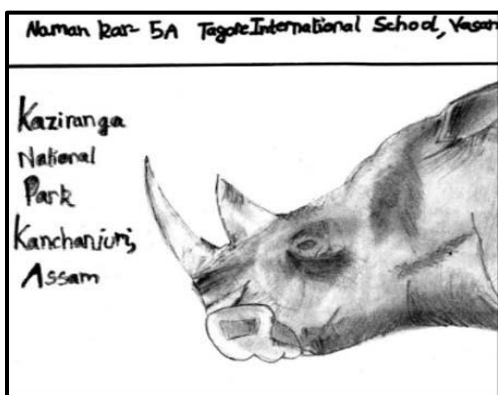 Naman Kar 5A Tagore International School, Vasan
Kaziranga
National
Park
Kanchanjuri,
Assam